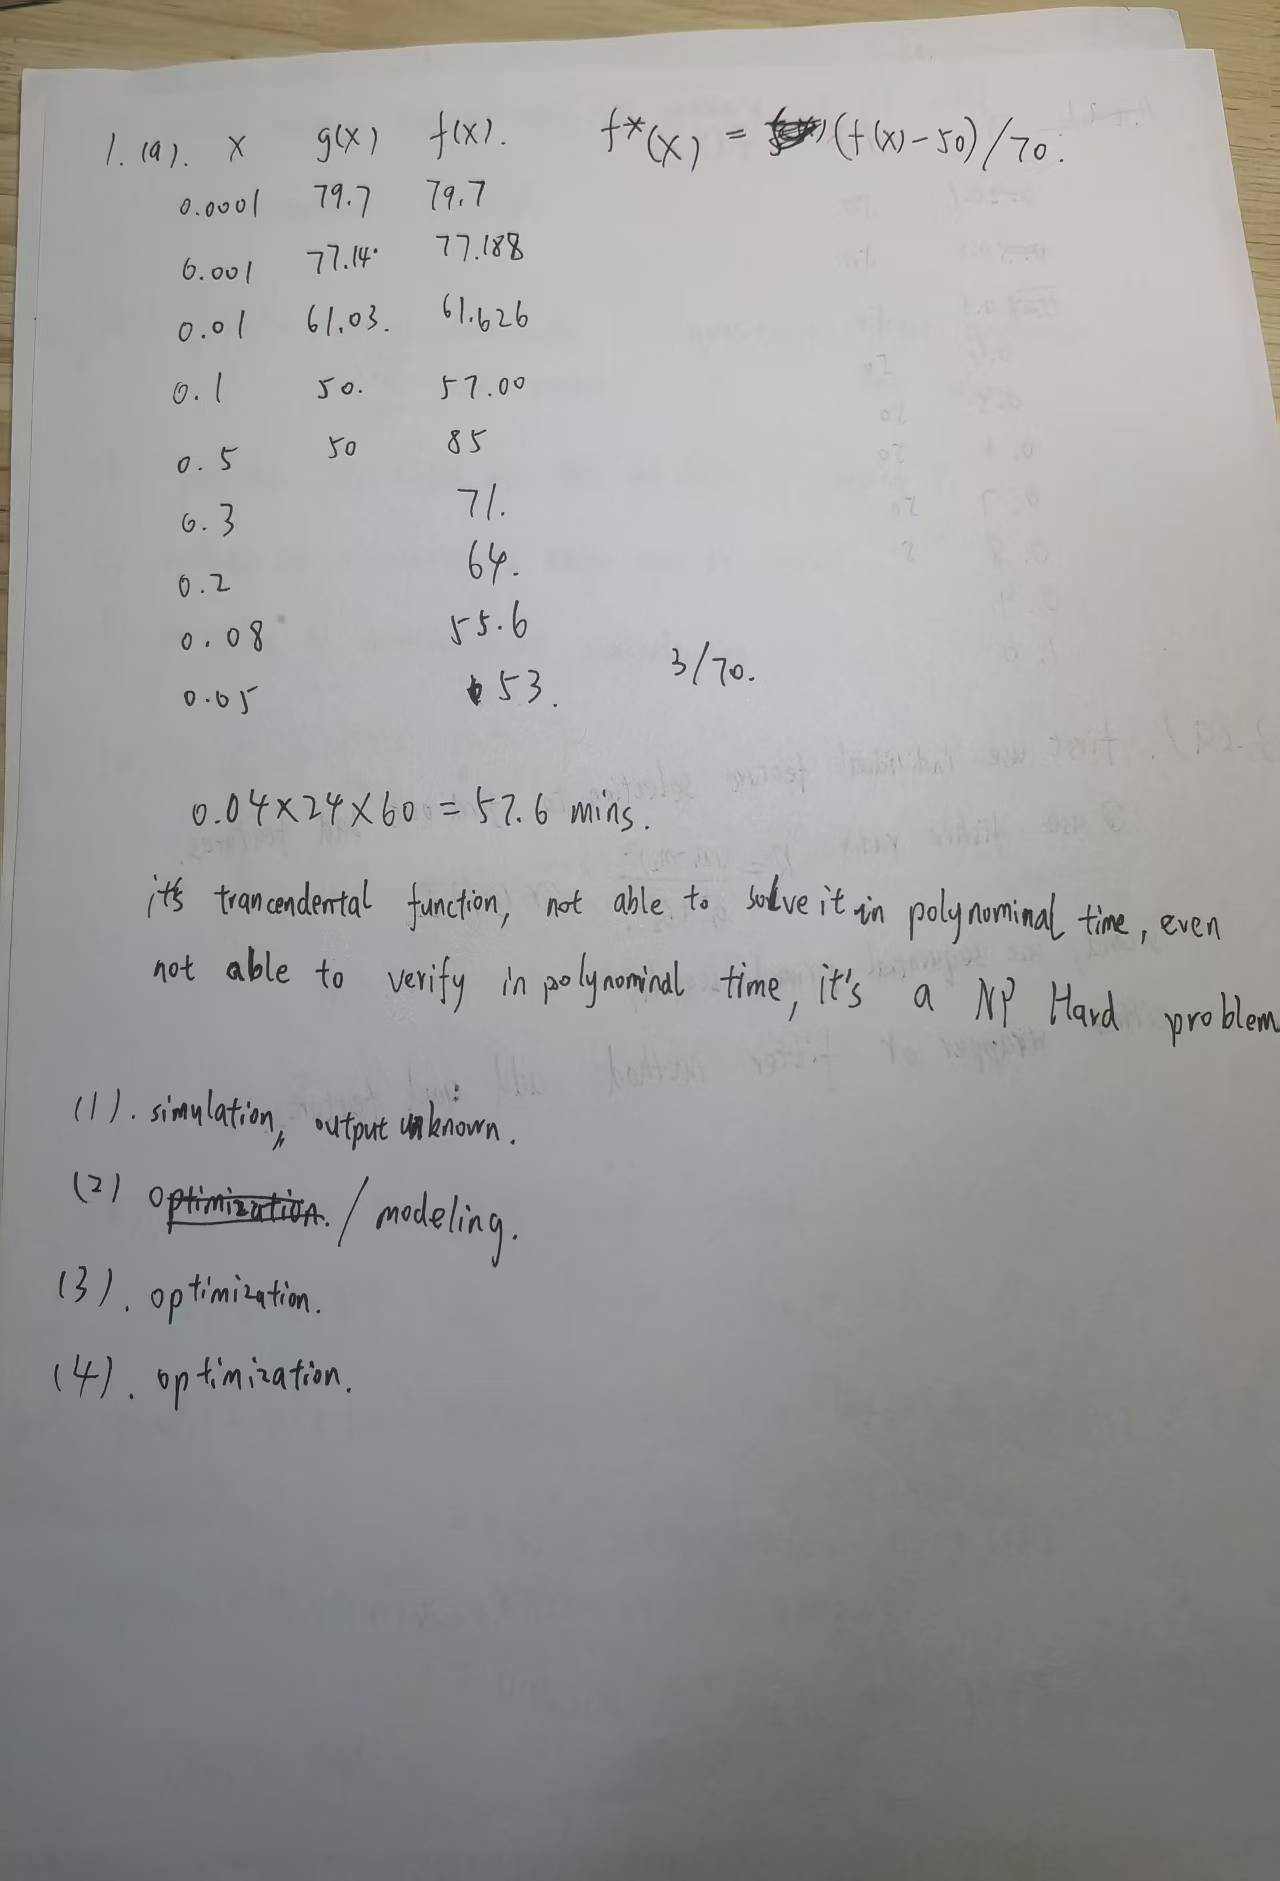 1. (a). x g(x) f(x). f*(x) = (f(x)-50)/70.
0.0001 79.7 79.7
0.001 77.14 77.188
0.01 61.03. 61.626
0.1 50. 57.00
0.5 50 85
0.3 71.
0.2 64.
0.08 55.6
0.05 53. 3/70.
0.04×24×60=57.6 mins.
it's trancendental function, not able to solve it in polynominal time, even
not able to verify in polynominal time, it's a NP Hard problem
(1). simulation, output unknown.
(2) optimization. / modeling.
(3). optimization.
(4). optimization.